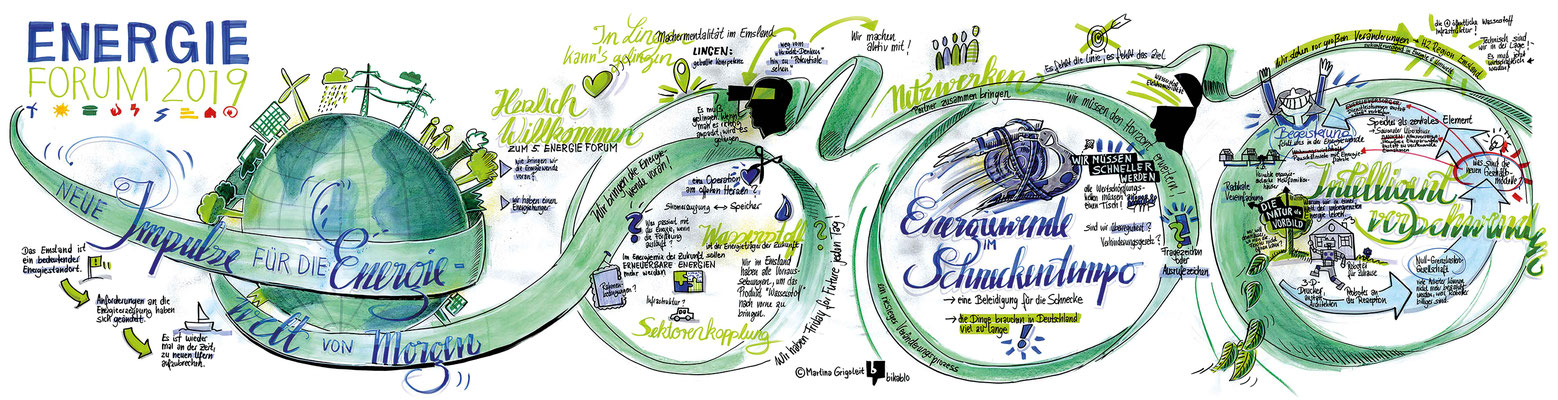 ENERGIE
FORUM 2019
NEUE Impulse FÜR DIE Energie-
welt VON Morgen
Das Emsland ist
ein bedeutender
Energiestandort.
Anforderungen an die
Energieerzeugung haben
sich geändert.
Es ist wieder
mal an der Zeit,
zu neuen Ufern
aufzubrechen.
Herzlich
Willkommen
ZUM 5. ENERGIE FORUM
Wie bringen wir
die Energiewende
voran?
Wir haben einen
In Lingen
kann's gelingen
Machermentalität im Emsland
LINGEN:
geballte Kompetenz
weg vom
hin zu "Potentiale
sehen"
Wir machen
aktiv mit!
Es muß
gelingen. Wenn
man es richtig
anpackt, wird es
gelingen
Wir bringen die Energie
wende voran!
eine Operation
am offenen Herzen?
Stromerzeugung ↔ Speicher
Was passiert mit
der Energie, wenn
die Förderung
ausläuft?
Wasserstoff
ist der Energieträger der Zukunft
Im Energiemix der Zukunft sollen
ERNEUERBARE ENERGIEN
mehr werden
Rahmen-
bedingungen?
Infrastruktur?
Sektorenkopplung
Wir im Emsland
haben alle Voraus-
setzungen, um das
Produkt "Wasserstoff"
nach vorne zu
bringen.
Wir haben Friday for Future jeden Tag!
©Martina Grigoleit
bikablo
Netzwerken
Partner zusammen bringen
Es fehlt die Linie, es fehlt das Ziel
Wir müssen den Horizont erweitern
WIR MÜSSEN
SCHNELLER
WERDEN
alle Wertschöpfungs-
ketten müssen
an den Tisch!
Sind wir überreguliert?
Verhinderungsgesetze?
Fragezeichen
oder
Ausrufezeichen
Energiewende
IM
Schneckentempo
→ eine Beleidigung für die Schnecke
→ die Dinge brauchen in Deutschland
viel zu lange
ein riesiger Veränderungsprozess
Wir stehen vor großen Veränderungen → H2 Region Emsland
die öffentliche Wasserstoff
infrastruktur!
Technisch sind
wir in der Lage!
Es muß jetzt
wirtschaftlich
werden!
Begeisterung
fehlt uns in der Energiewende
Speicher als zentrales Element
Was sind die
neuen Geschäfts-
modelle?
Radikale
Vereinfachung
Intelligent
verschwinden
DIE
NATUR als
VORBILD
Roboter
für Zuhause
3-D-
Drucker
Roboter an
der Rezeption
Null-Grenzkosten-
Gesellschaft